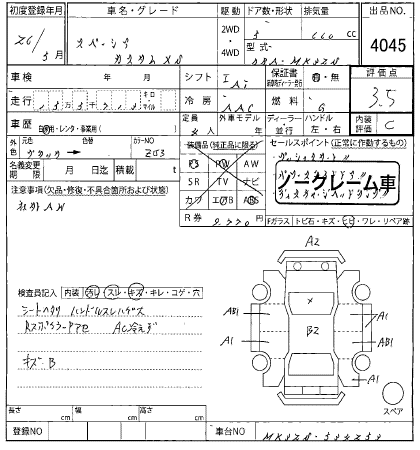 初度登録年月 車名・グレード 駆動 ドア数・形状 排気量 出品NO
26/ 3月 スペーシア カスタムXS 2WD ・ 4WD 5 660 cc 4045
型式 DBA-MK32S
車検 年 月 シフト IAT 保証書 有・無 評価点
走行 冷房 AAC 燃料 G 3.5
車歴 自家用・レンタ・事業用( ) 定員 人 外車モデル 年 ディーラー 並行 ハンドル 左・右 内装評価 C
外色 元色 色替 カラーNO
ブラック ZJ3
名義変更期限 月 日迄 積載 t
装備品(純正品に限る)
PS PW AW
SR TV ナビ
カワ エアB ABS
R券
セールスポイント(正常に作動するもの)
ノークレーム車
注意事項(欠品・修復・不具合箇所および状態)
社外AW
Fガラス トビ石・キズ・ヒビ・ワレ・リペア跡
A2
検査員記入 内装 汚レ・スレ・キズ・キレ・コゲ・穴
シートヘタリ ハンドルスレハゲス
Rスポイラーアセ AC冷えず
キズB
AB1 A1
B2
A1 AB1
A1
スペア
長さ cm 幅 cm 高さ cm
登録NO 車台NO MK32S-534253